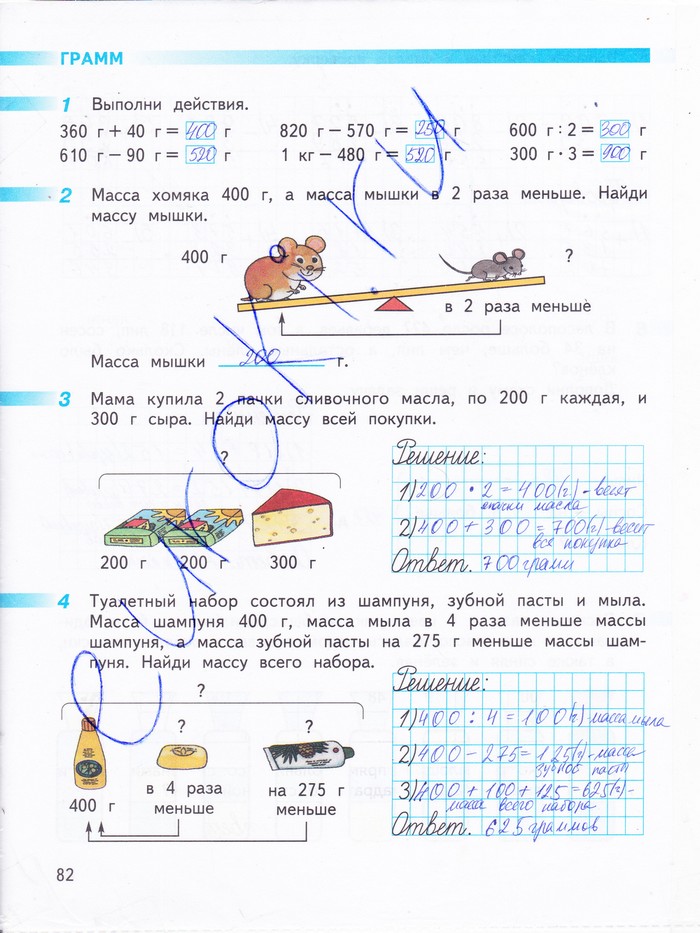 ГРАММ
1 Выполни действия.
360 г + 40 г = 400 г 820 г − 570 г = 250 г 600 г : 2 = 300 г
610 г − 90 г = 520 г 1 кг − 480 г = 520 г 300 г · 3 = 900 г
2 Масса хомяка 400 г, а масса мышки в 2 раза меньше. Найди
массу мышки.
400 г ?
в 2 раза меньше
Масса мышки 200 г.
3 Мама купила 2 пачки сливочного масла, по 200 г каждая, и
300 г сыра. Найди массу всей покупки.
?
200 г 200 г 300 г
Решение:
1) 200 · 2 = 400 (г) - весят
пачки масла
2) 400 + 300 = 700 (г) - весит
вся покупка
Ответ. 700 грамм
4 Туалетный набор состоял из шампуня, зубной пасты и мыла.
Масса шампуня 400 г, масса мыла в 4 раза меньше массы
шампуня, а масса зубной пасты на 275 г меньше массы шам-
пуня. Найди массу всего набора.
?
? ?
400 г в 4 раза меньше на 275 г меньше
Решение:
1) 400 : 4 = 100 (г) масса мыла
2) 400 − 275 = 125 (г) - масса
зубной пасты
3) 400 + 100 + 125 = 625 (г) -
масса всего набора
Ответ. 625 граммов
82